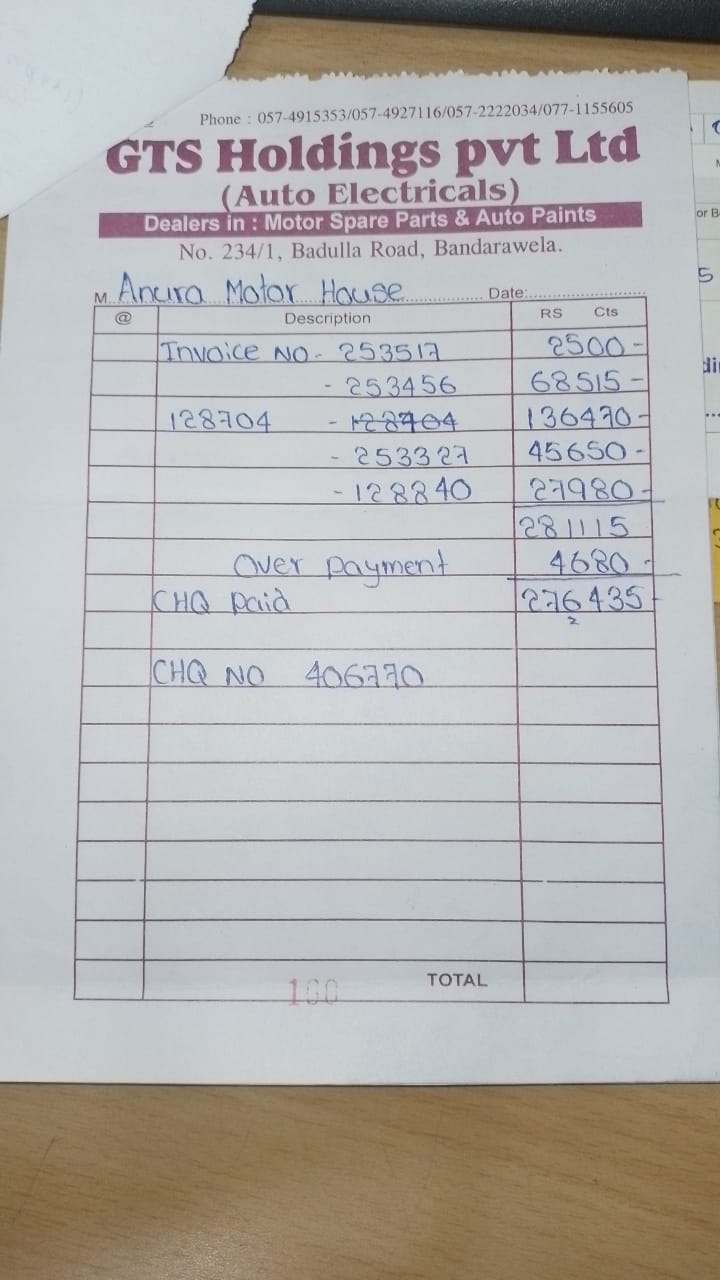 Phone : 057-4915353/057-4927116/057-2222034/077-1155605
GTS Holdings pvt Ltd
(Auto Electricals)
Dealers in : Motor Spare Parts & Auto Paints
No. 234/1, Badulla Road, Bandarawela.
M. Anura Motor House Date:
@ Description RS Cts
Invoice NO - 253517 2500 -
- 253456 68515 -
128704 - 128404 136470 -
- 253327 45650 -
- 128840 27980 -
281115
Over payment 4680 -
CHQ paid 276435 -
2
CHQ NO 406770
100 TOTAL
or B
5